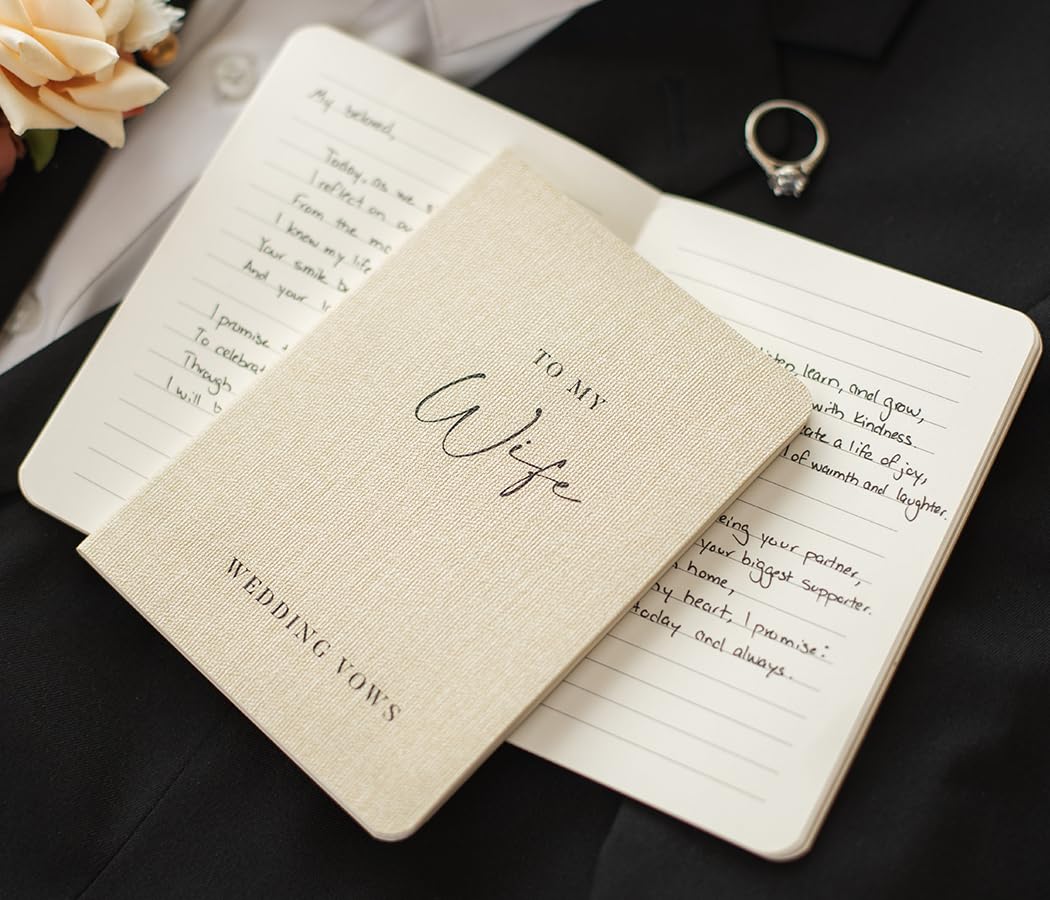 My beloved,
Today, as we s
I reflect on
From the mo
I knew my life
Your smile b
And your
I promise
To celebrat
Through
I will b
TO MY
Wife
WEDDING VOWS
learn, and grow,
with kindness.
ate a life of joy,
of warmth and laughter.
eing your partner,
your biggest supporter.
home,
my heart, I promise:
today and always.